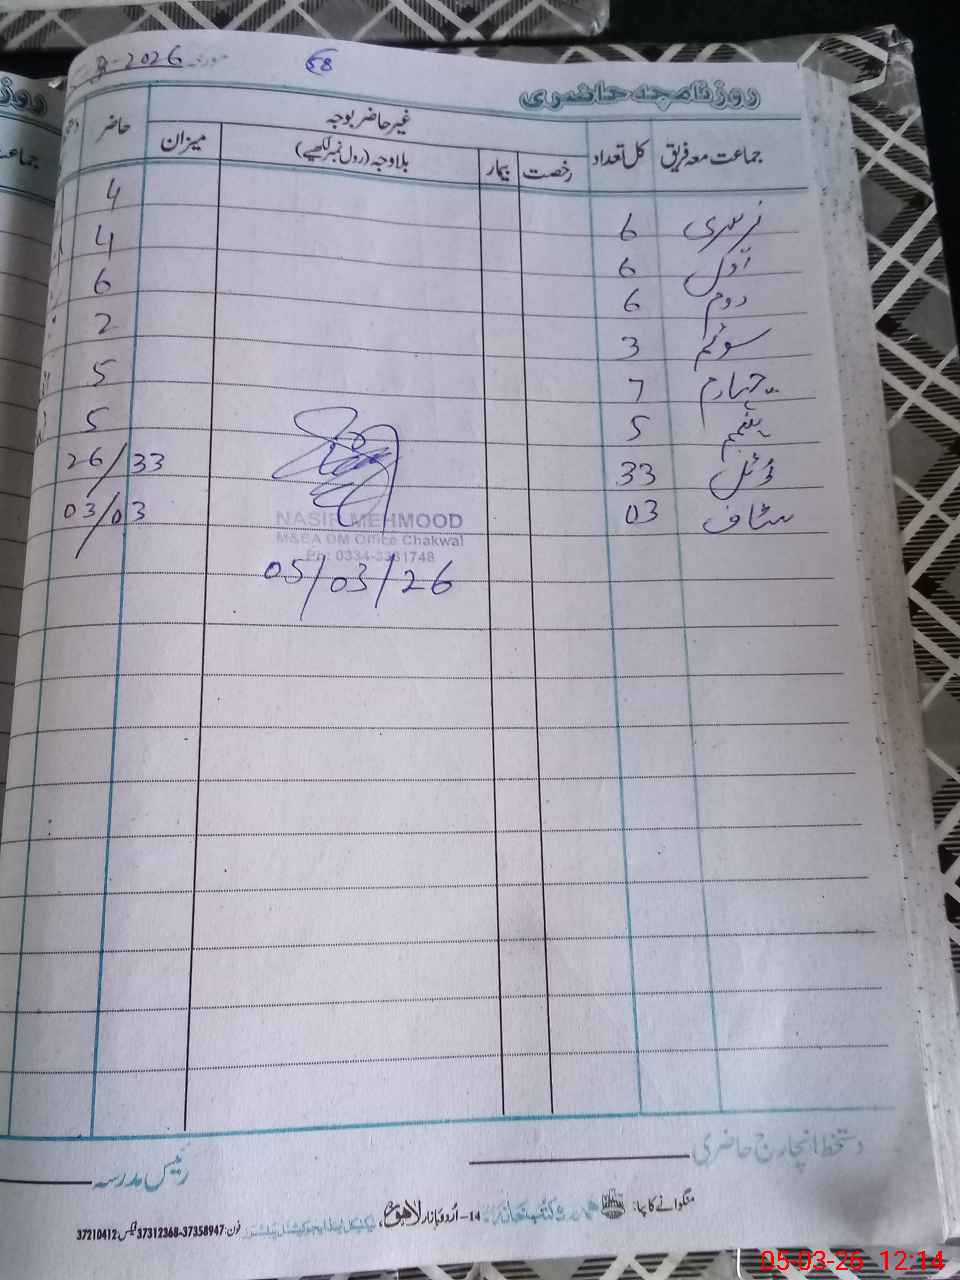 2026
68
روزنامچہ حاضری
جماعت معہ فریق کل تعداد غیر حاضر بوجہ حاضر
رخصت بیمار بلا وجہ (رول نمبر لکھیے) میزان
نرسری 6 4
اول 6 4
دوم 6 6
سوئم 3 2
چہارم 7 5
پنجم 5 5
ٹوٹل 33 26/33
سٹاف 03 03/03
NASIR MEHMOOD
M&EA DM Office Chakwal
05/03/26
دستخط انچارج حاضری
رئیس مدرسہ
منگوانے کا پتا: ہمدرد کتب خانہ 14-اُردو بازار لاہور،
فون: 37312368-37358947 فیکس: 37210412
05-03-26 12:14